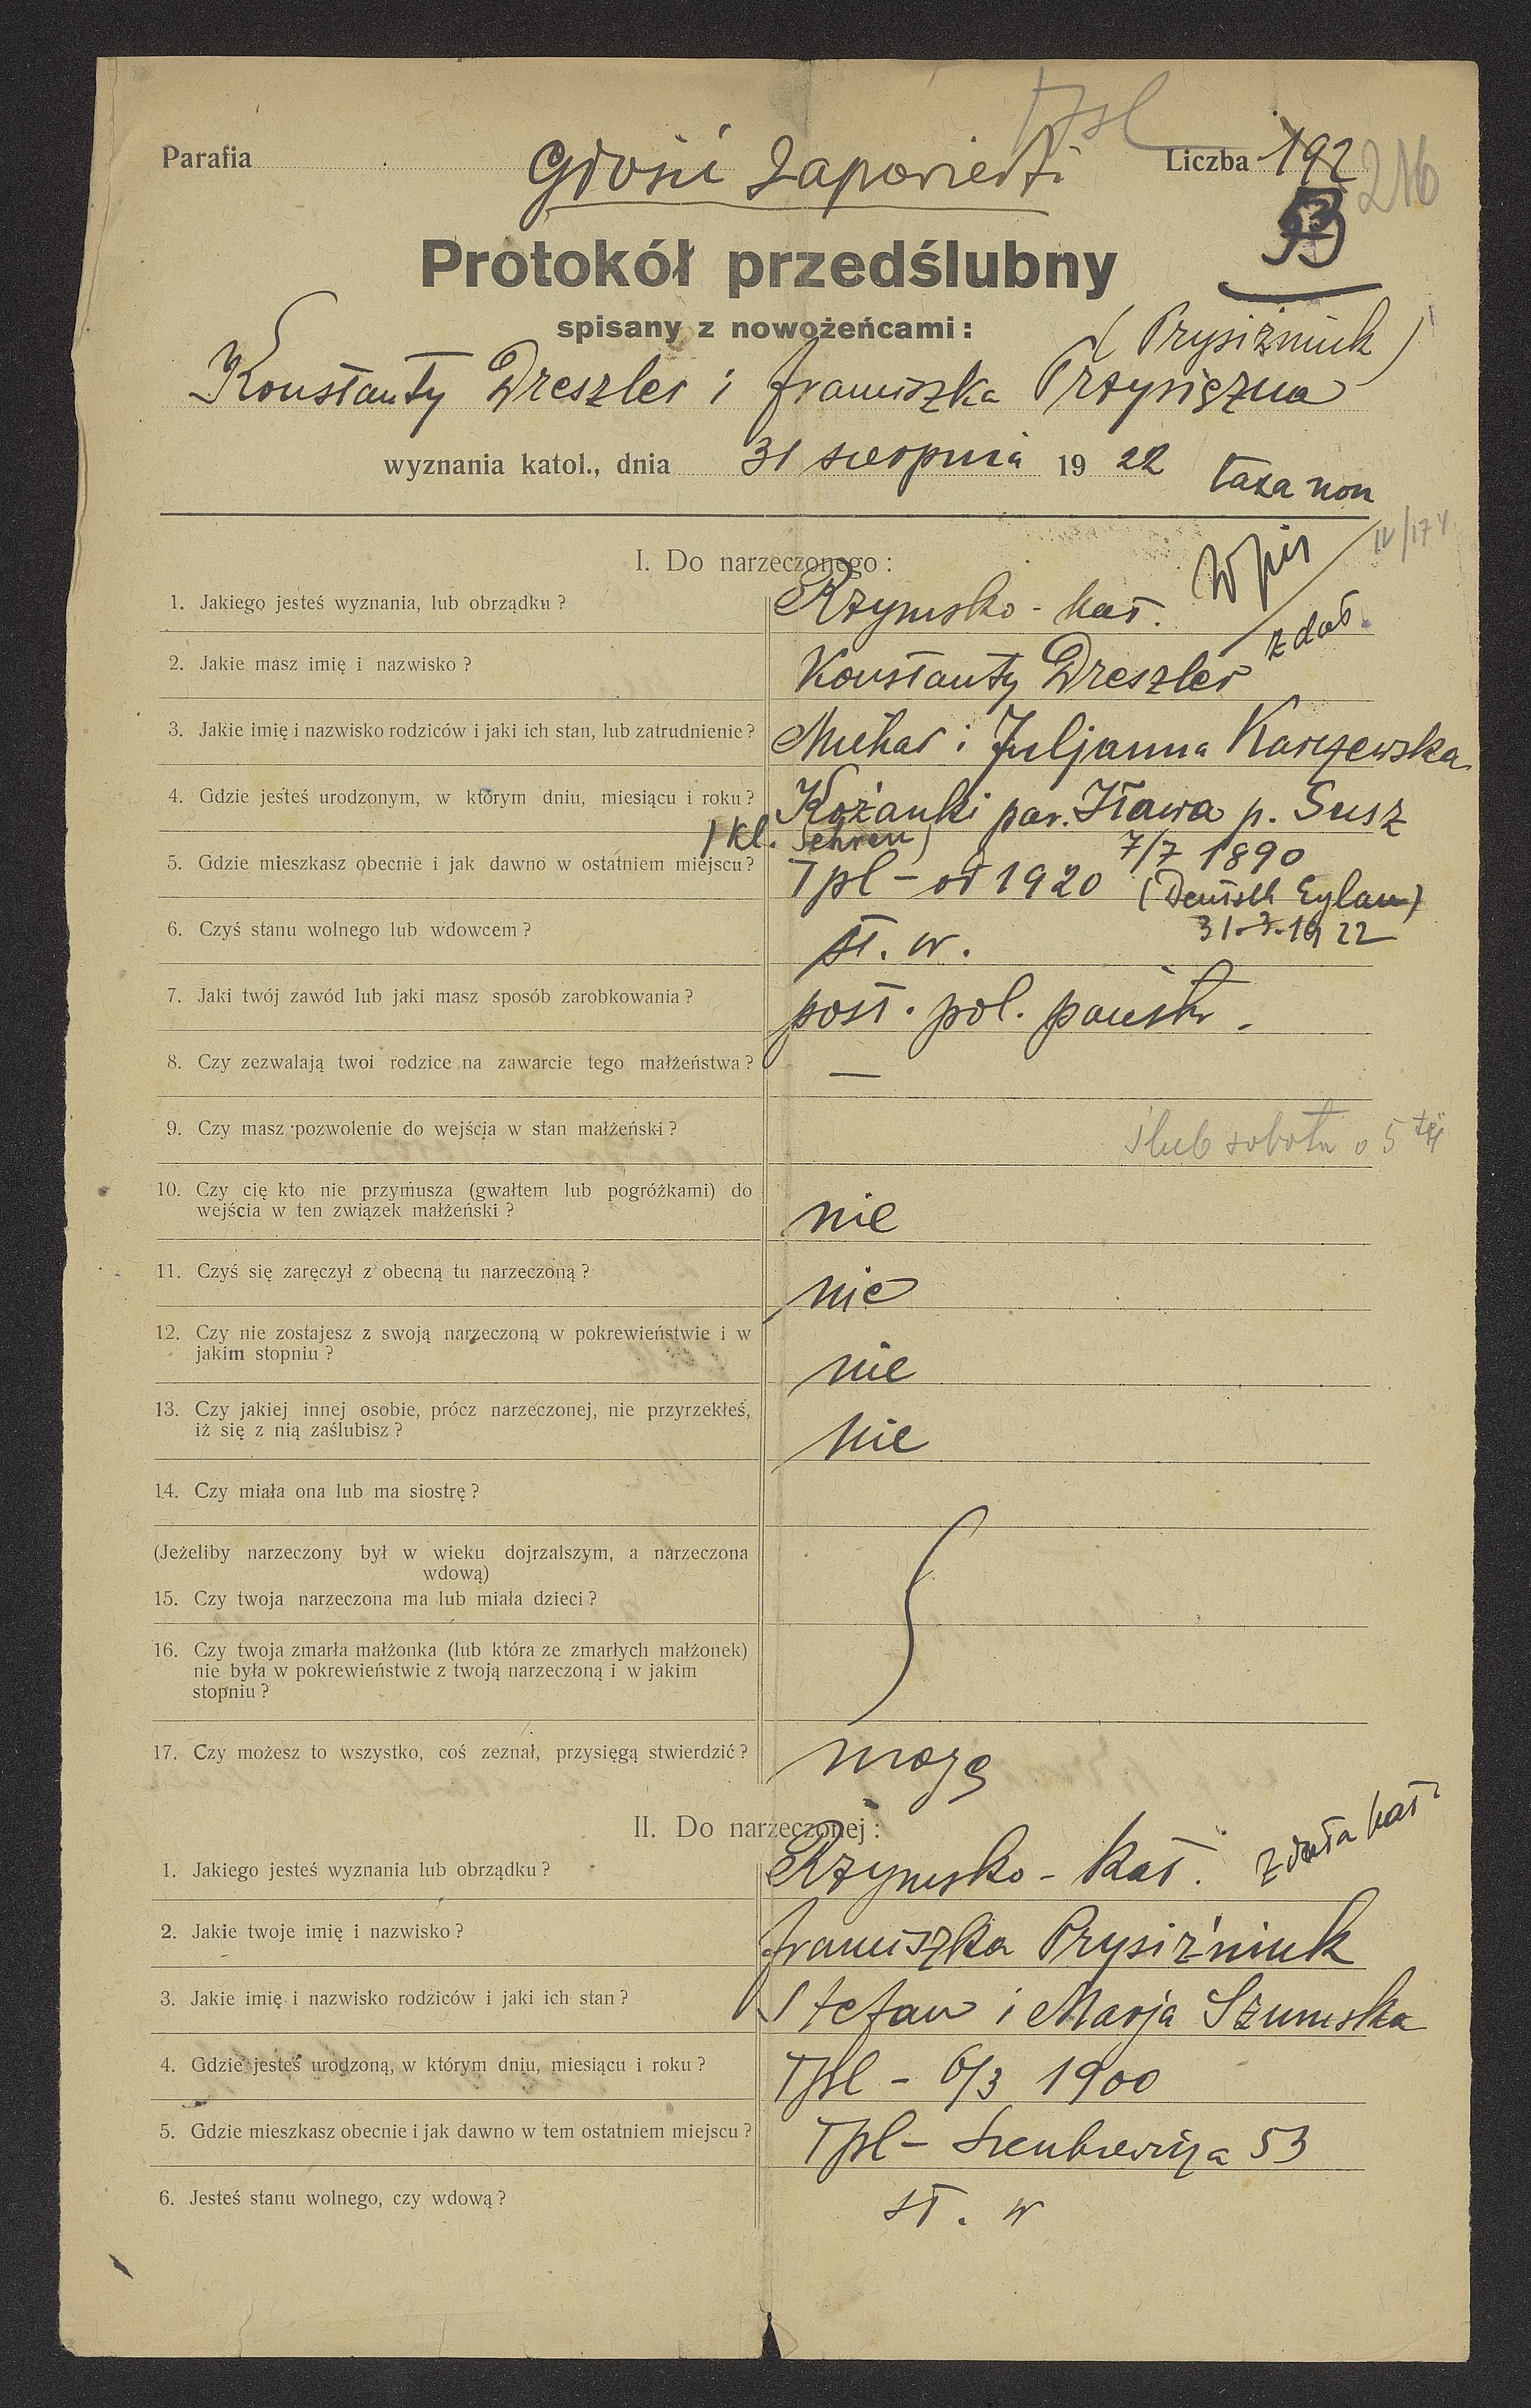 Tpl
Parafia Głosić Zapowiedzi Liczba 192 216
53
Protokół przedślubny
spisany z nowożeńcami:
(Prysiżniuk)
Konstanty Dreszler i Franciszka Przysiężna
wyznania katol., dnia 31 sierpnia 19 22
taxa non
IV/174
I. Do narzeczonego:
Wpis
1. Jakiego jesteś wyznania, lub obrządku? Rzymsko-kat.
zdał
2. Jakie masz imię i nazwisko? Konstanty Dreszler
3. Jakie imię i nazwisko rodziców i jaki ich stan, lub zatrudnienie? Michał i Juljanna Karczewska
4. Gdzie jesteś urodzonym, w którym dniu, miesiącu i roku? Kożanki par. Iława p. Susz
(kl. Sehren) 7/7 1890
5. Gdzie mieszkasz obecnie i jak dawno w ostatniem miejscu? Tpl - od 1920 (Deutsch Eylau)
31.3.1922
6. Czyś stanu wolnego lub wdowcem? st. w.
7. Jaki twój zawód lub jaki masz sposób zarobkowania? post. pol. państw.
8. Czy zezwalają twoi rodzice na zawarcie tego małżeństwa? —
9. Czy masz pozwolenie do wejścia w stan małżeński? ślub sobota o 5 tej
10. Czy cię kto nie przymusza (gwałtem lub pogróżkami) do
wejścia w ten związek małżeński? nie
11. Czyś się zaręczył z obecną tu narzeczoną? nie
12. Czy nie zostajesz z swoją narzeczoną w pokrewieństwie i w
jakim stopniu? nie
13. Czy jakiej innej osobie, prócz narzeczonej, nie przyrzekłeś,
iż się z nią zaślubisz? nie
14. Czy miała ona lub ma siostrę?
(Jeżeliby narzeczony był w wieku dojrzalszym, a narzeczona
wdową)
15. Czy twoja narzeczona ma lub miała dzieci?
16. Czy twoja zmarła małżonka (lub która ze zmarłych małżonek)
nie była w pokrewieństwie z twoją narzeczoną i w jakim
stopniu?
17. Czy możesz to wszystko, coś zeznał, przysięgą stwierdzić? mogę
II. Do narzeczonej:
1. Jakiego jesteś wyznania lub obrządku? Rzymsko-kat. zdała kat
2. Jakie twoje imię i nazwisko? Franciszka Prysiżniuk
3. Jakie imię i nazwisko rodziców i jaki ich stan? Stefan i Marja Szumska
4. Gdzie jesteś urodzoną, w którym dniu, miesiącu i roku? Tpl - 6/3 1900
5. Gdzie mieszkasz obecnie i jak dawno w tem ostatniem miejscu? Tpl - Sienkiewicza 53
6. Jesteś stanu wolnego, czy wdową? st. w